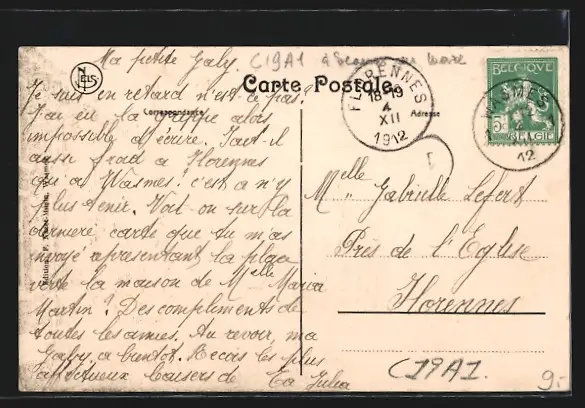 Ma petite Gaby. C19A1
Carte Postale
Correspondance
Adresse
FLORENNES
18-19
4
XII
1912
BELGIQUE
5
WASMES
12
NELS
Je suis en retard n'est-ce pas?
J'ai eu la grippe alors
impossible d'écrire. Fait-il
aussi froid à Florennes
qu'à Wasmes? c'est à n'y
plus tenir. Voit-on sur la
dernière carte que tu m'as
envoyé représentant la place
verte la maison de Melle Maria
Martin? Des compliments de
toutes les amies. Au revoir, ma
Gaby, à bientôt. Reçois les plus
affectueux baisers de Ta Julia
Melle Gabrielle Lefert
Près de l'Eglise
Florennes
C19A1.
9.-